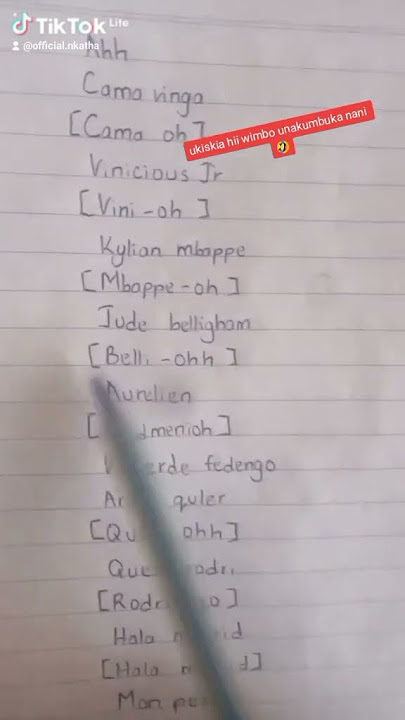 TikTok Lite
@official.nkatha
Ahh
Cama vinga
[Cama oh]
ukiskia hii wimbo unakumbuka nani
🤣
Vinicious Jr
[Vini-oh]
Kylian mbappe
[Mbappe-oh]
Jude belligham
[Belli-ohh]
Aurelien
fedengo
quler
[ ohh]
Hala
[Hala
Mon